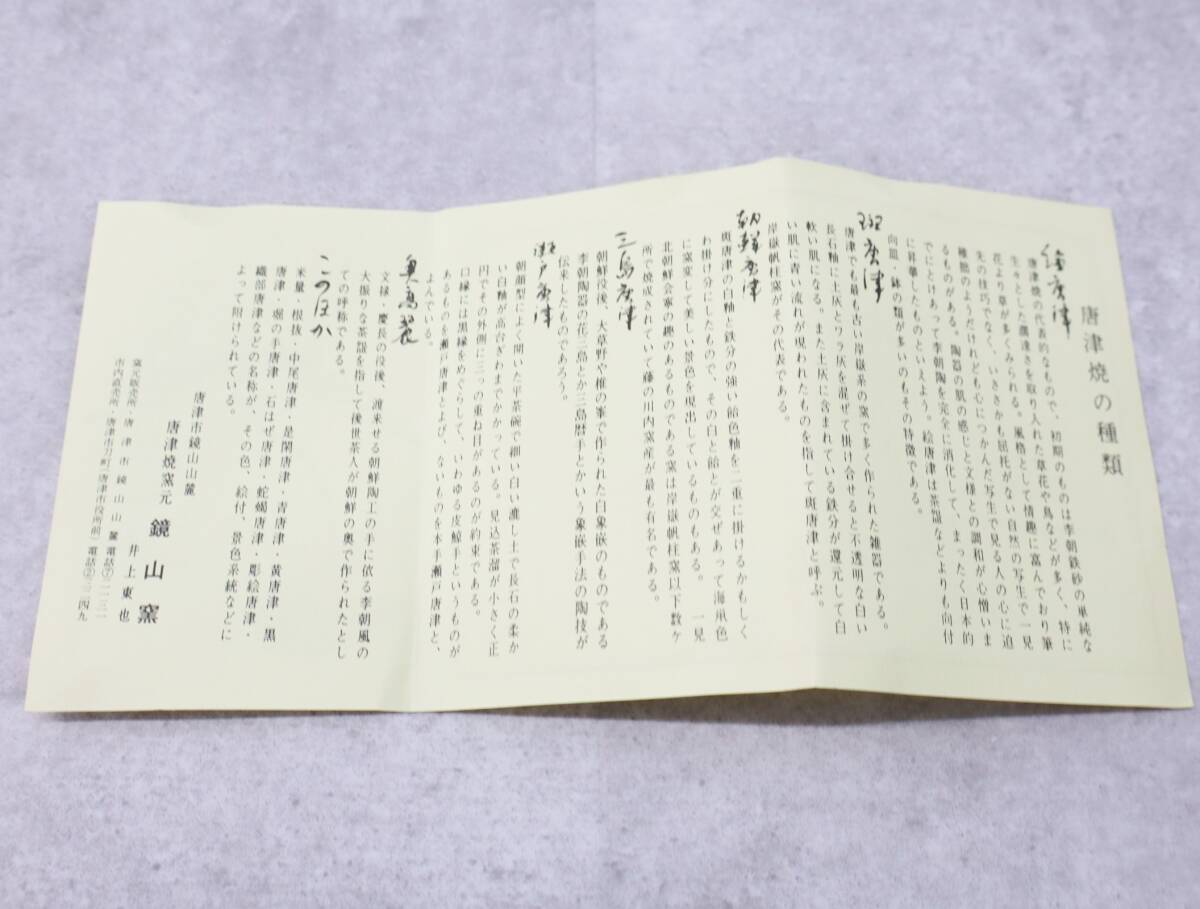 唐津焼の種類
絵唐津
唐津焼の代表的なもので、初期のものは李朝鉄砂の単純な
生々とした濶達さを取り入れた草花や鳥などが多く、特に
花より草が多くみられる。風格として情趣に富んでおり筆
先の技巧でなく、いささかも屈托がない自然の写生で一見
稚拙のようだけれども心につかんだ写生で見る人の心に迫
るものがある。陶器の肌の感じと文様との調和が心憎いま
でにとけあって李朝陶を完全に消化して、まったく日本的
に昇華したものといえよう。絵唐津は茶盌などよりも向付
向皿・鉢の類が多いのもその特徴である。
斑唐津
唐津でも最も古い岸嶽系の窯で多く作られた雑器である。
長石釉に土灰とワラ灰を混ぜて掛け合せると不透明な白い
軟い肌になる。また土灰に含まれている鉄分が還元して白
い肌に青い流れが現われたものを指して斑唐津と呼ぶ。
岸嶽帆柱窯がその代表である。
朝鮮唐津
斑唐津の白釉と鉄分の強い飴色釉を二重に掛けるかもしく
わ掛け分にしたもので、その白と飴とが交ぜあって海鼠色
に窯変して美しい景色を現出しているものもある。 一見
北朝鮮会寧の趣のあるものである窯は岸嶽帆柱窯以下数ヶ
所で焼成されていて藤の川内窯産が最も有名である。
三島唐津
朝鮮役後、大草野や椎の峯で作られた白象嵌のものである
李朝陶器の花三島とか三島暦手とかいう象嵌手法の陶技が
伝来したものであろう。
瀬戸唐津
朝顔型によく開いた平茶碗で細い白い漉し土で長石の柔か
い白釉が高台ぎわまでかかっている。見込茶溜が小さく正
円でその外側に三つの重ね目があるのが約束である。
口縁には黒縁をめぐらして、いわゆる皮鯨手というものが
あるものを瀬戸唐津とよび、ないものを本手瀬戸唐津と、
よんでいる。
奥高麗
文禄・慶長の役後、渡来せる朝鮮陶工の手に依る李朝風の
大振りな茶盌を指して後世茶人が朝鮮の奥で作られたとし
ての呼称である。
このほか
米量・根抜・中尾唐津・是閑唐津・青唐津・黄唐津・黒
唐津・堀の手唐津・石はぜ唐津・蛇蝎唐津・彫絵唐津・
織部唐津などの名称が、その色、絵付、景色系統などに
よって附けられている。
唐津市鏡山山麓
唐津焼窯元 鏡山窯
井上東也
窯元販売所・唐津市鏡山山麓
市内直売所・唐津市刀町(唐津市役所前)